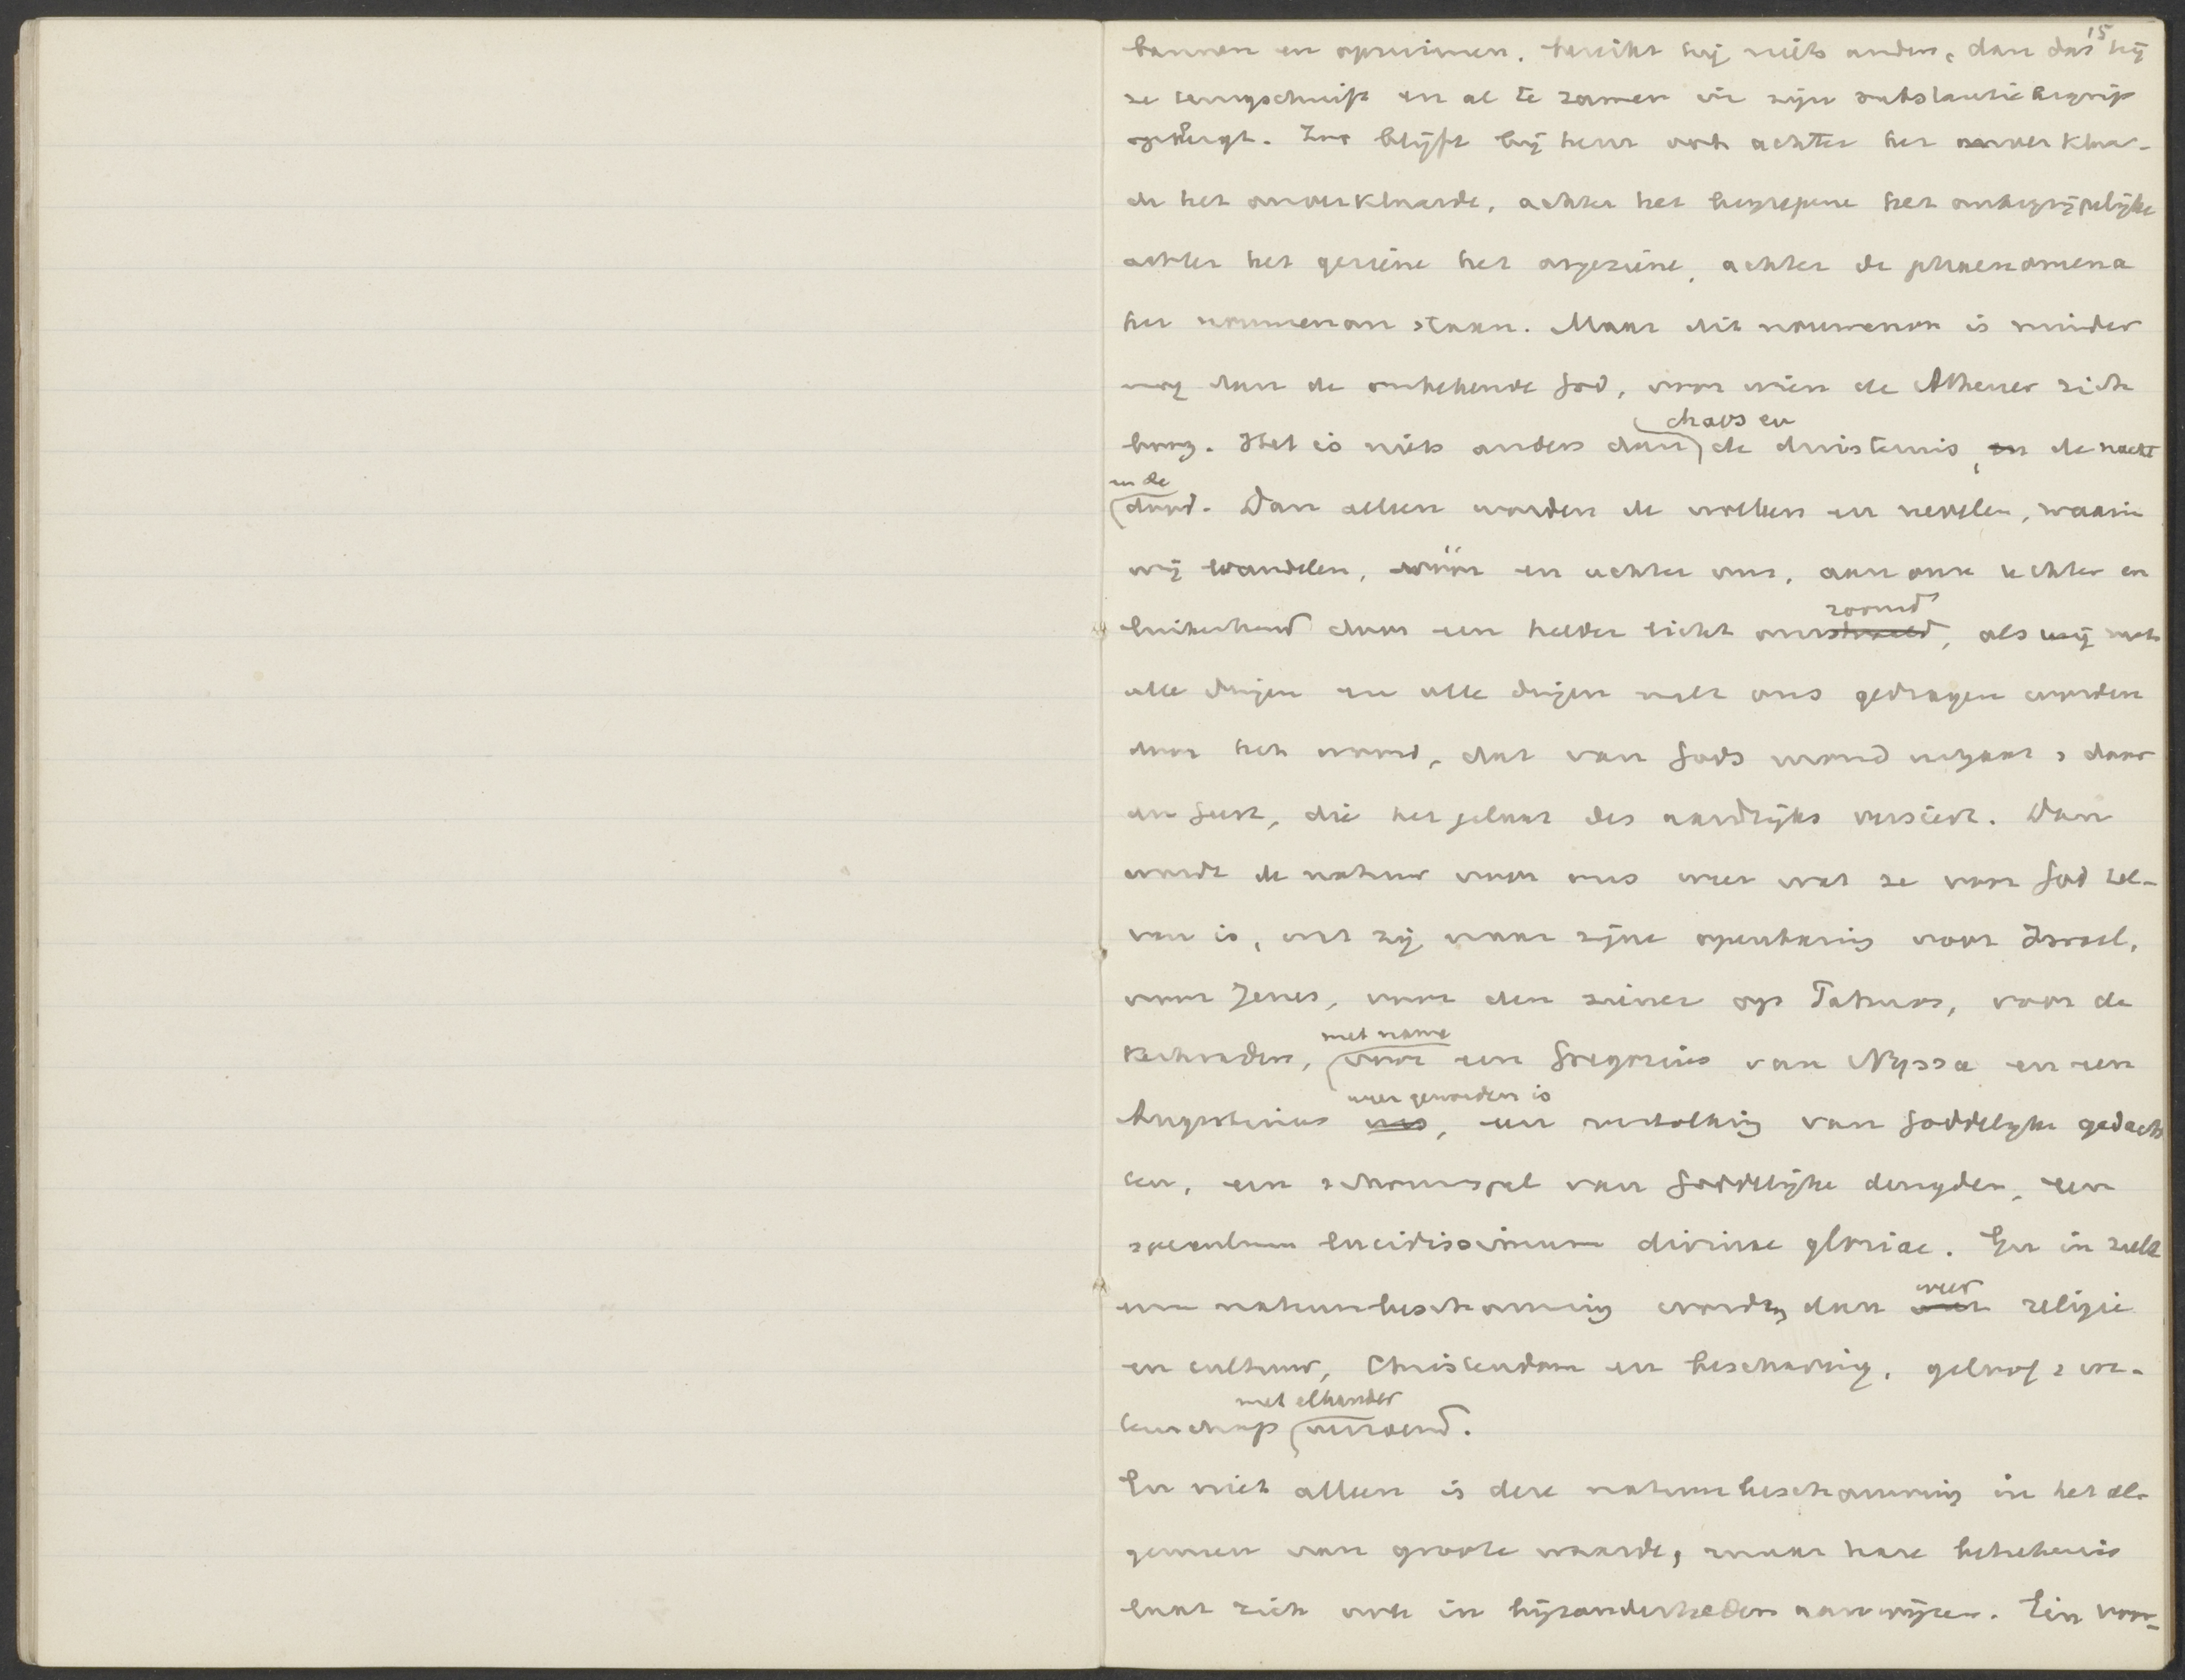 15
bannen en opruimen, bereikt hij niets anders, dan dat hij
ze terugschuift en al te zamen in zijn substantiebegrip
opbergt. Zoo blijft bij hem ook achter het onverklaar-
de het onverklaarde, achter het begrepene het onbegrijpelijke
achter het geziene het ongeziene, achter de phaenomena
het noumenon staan. Maar dit noumenon is minder
nog dan de onbekende God, voor wien de Athener zich
boog. Het is niets anders dan de chaos en de duisternis, en de nacht
en de dood. Dan alleen worden de wolken en nevelen, waarin
wij wandelen, vóór en achter ons, aan onze rechter en
linkerhand door een helder licht omzoomd, als wij met
alle dingen en alle dingen met ons gedragen worden
door het woord, dat van Gods mond uitgaat, door
den Geest, die het gelaat des aardrijks versiert. Dan
wordt de natuur voor ons weer wat ze voor God zel-
ven is, wat zij naar zijne openbaring voor Israel,
voor Jezus, voor den ziener op Patmos, voor de
kerkvaders, met name voor een Gregorius van Nyssa en een
Augustinus was, weer geworden is een vertolking van Goddelijke gedach
ten, een schouwspel van Goddelijke deugden, een
speculum lucidissimum divinae gloriae. En in zulk
eene natuurbeschouwing worden dan weer religie
en cultuur, Christendom en beschaving, geloof & we-
tenschap met elkander verzoend.
En niet alleen is deze natuurbeschouwing in het al-
gemeen van groote waarde, maar hare beteekenis
laat zich ook in bijzonderheden aanwijzen. Een voor-